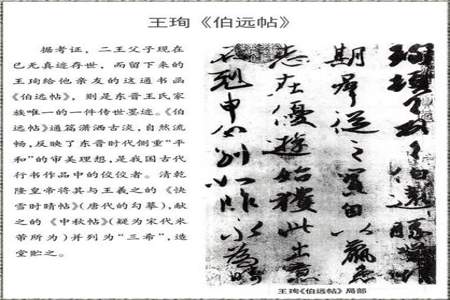 王珣《伯远帖》
据考证，二王父子现在
已无真迹存世，而留下来的
王珣给他亲友的这通书画
《伯远帖》，则是东晋王氏家
族唯一的一件传世墨迹。《伯
远帖》通篇潇洒古淡，自然流
畅，反映了东晋时代侧重“平
和”的审美理想，是我国古代
行书作品中的佼佼者。清乾
隆皇帝将其与王羲之的《快
雪时晴帖》(唐代的勾摹)，献
之的《中秋帖》(疑为宋代米
芾所为)并列为“三希”，造
堂贮之。
珣頓首頓首伯遠勝業
期羣從之寶自以羸患
志在優遊始獲此出意
不剋申分别如昨永為疇
王珣《伯远帖》局部